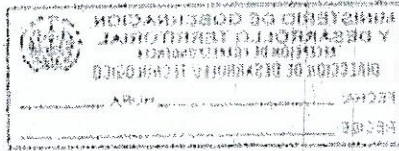 MINISTERIO DE GOBERNACION
Y DESARROLLO TERRITORIAL
DIRECCION DE DESARROLLO TECNOLOGICO
FECHA: HORA
RECIBE